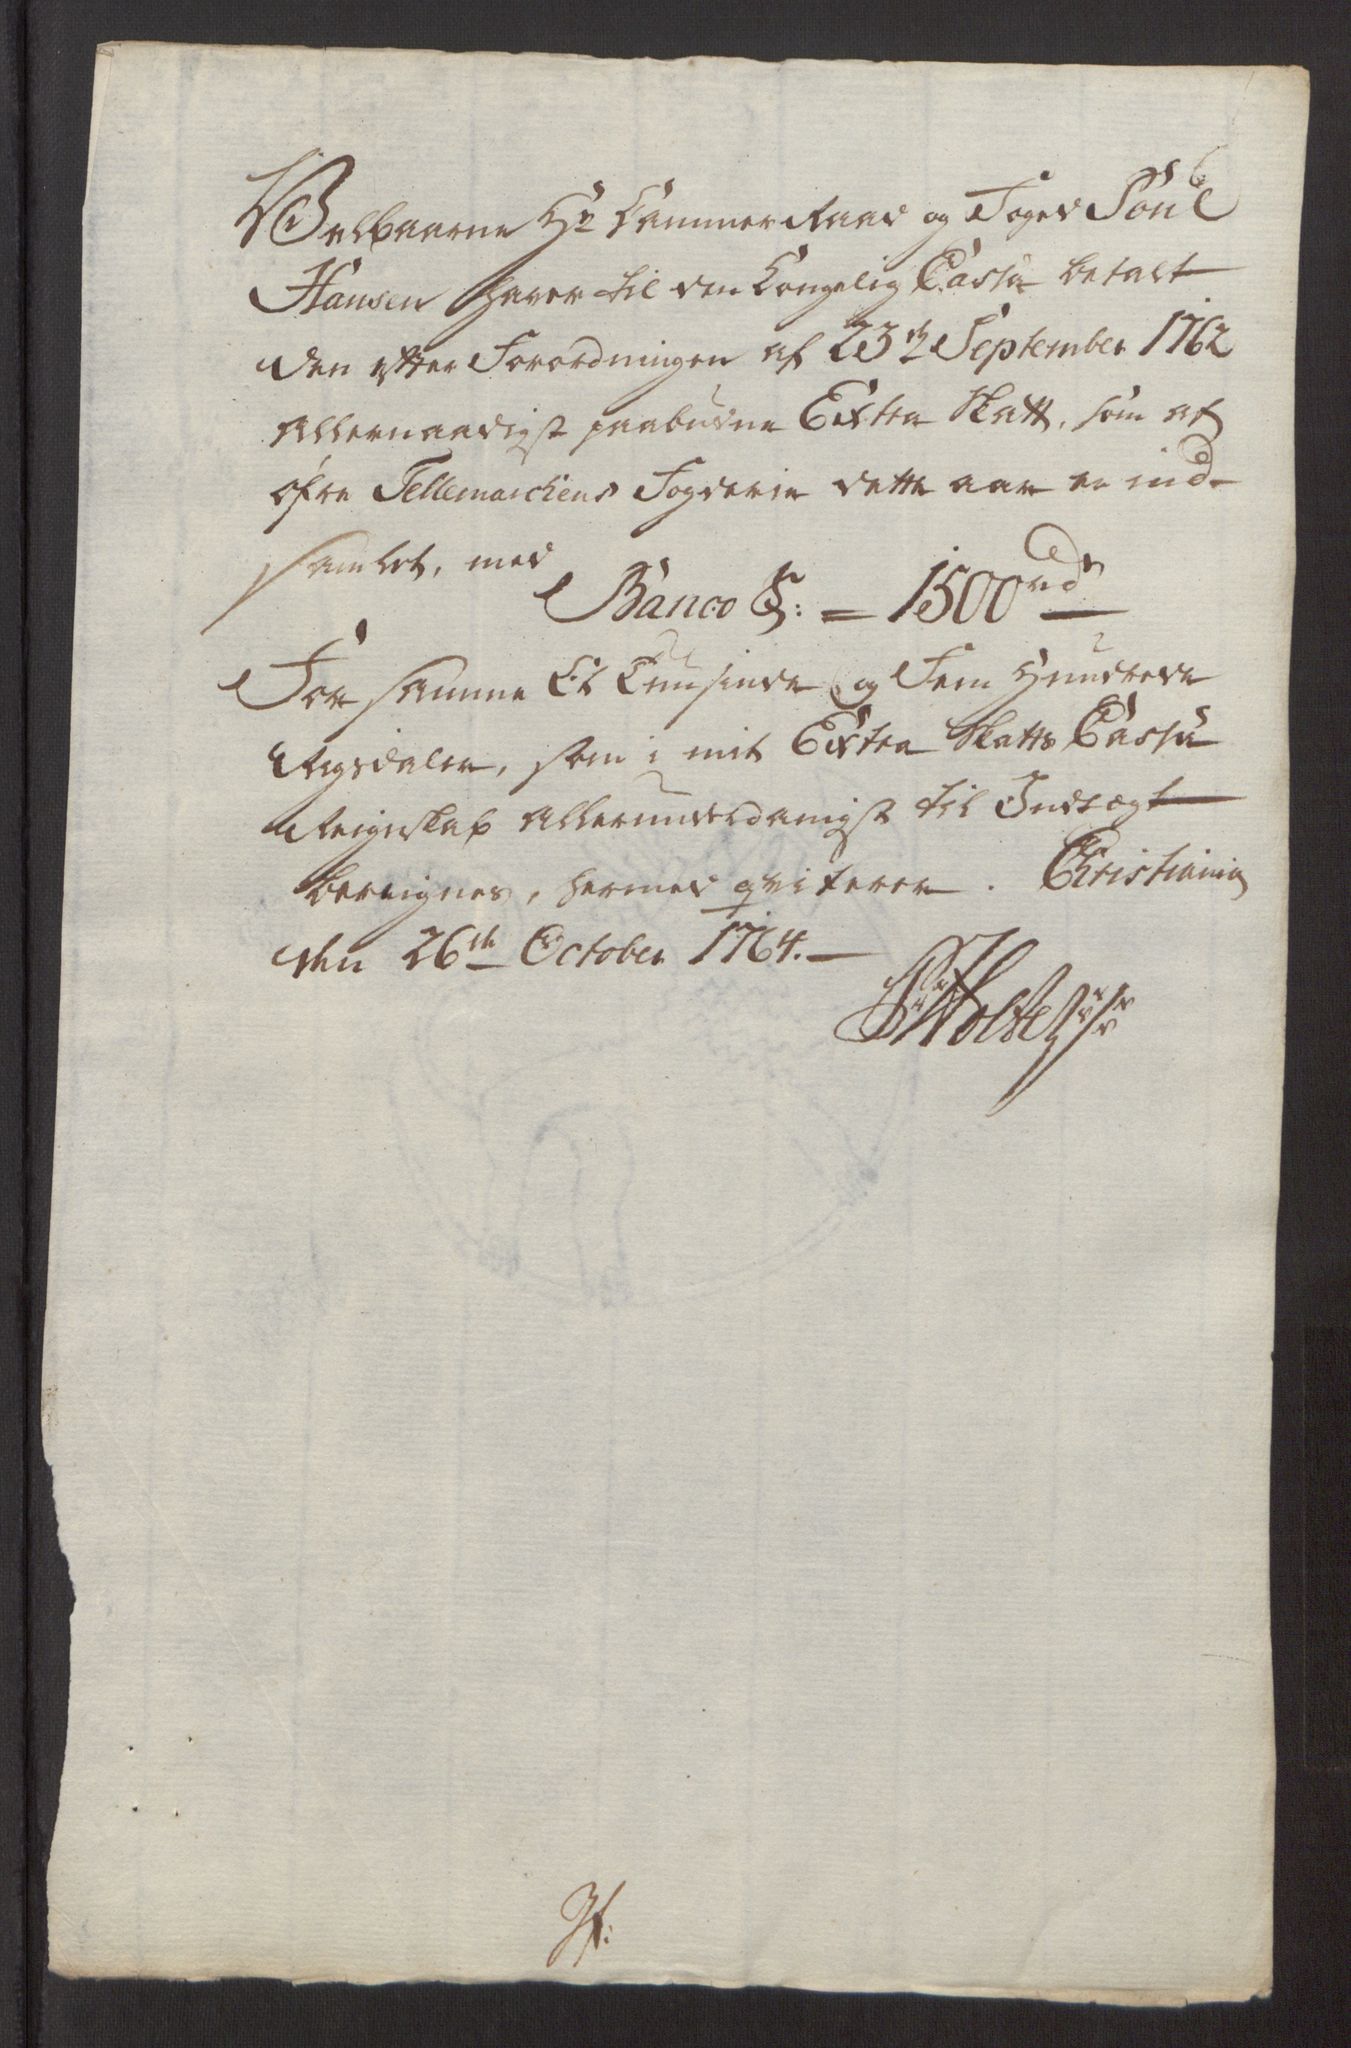 Velbaarne Hr Cammer Raad og Foged Poul
Hansen haver til den Kongelig Cassa betalt
den efter Forordningen af 23de September 1762
Allernaadigst paabudne Extra Skatt, som af
øfre Tellemarchens Fogderie dette aar er ind-
samlet, med
Banco = 1500rd
For samme Et Tuusinde og Fem Hundrede
Rigsdaler, som i mit Extra Skatts Cassa
Reignskab Allerunderdanigst til Indtægt
bereignes, hermed qviterer. Christiania
den 26th October 1764.
Holst